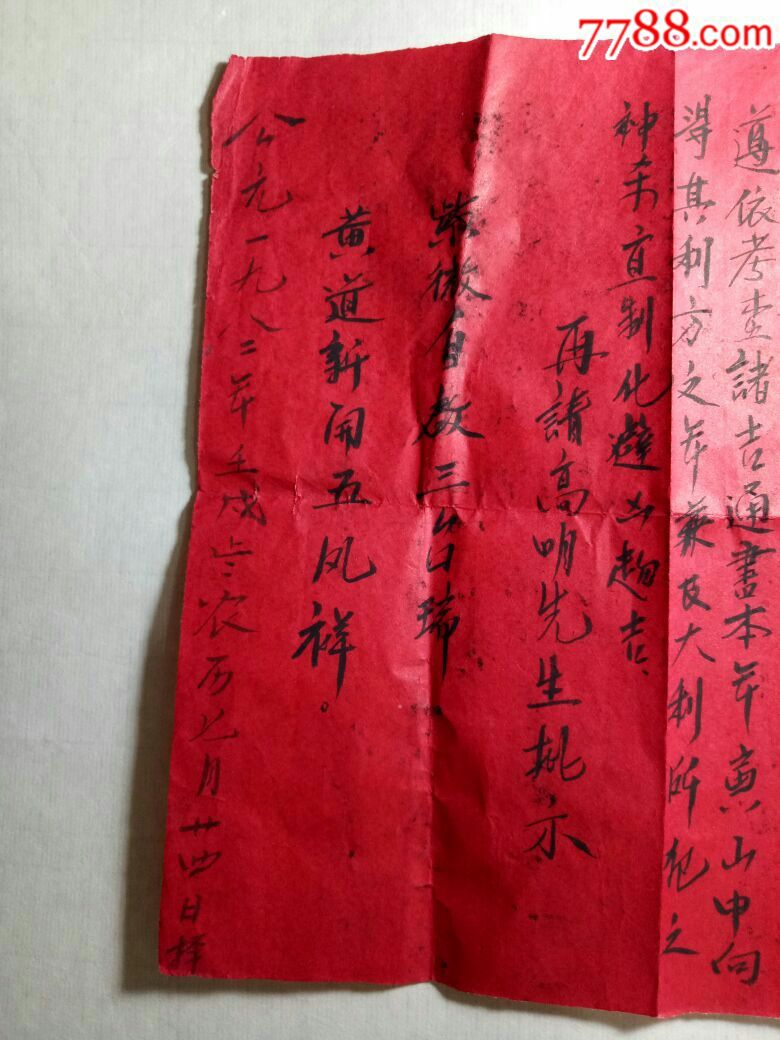 7788.com
遵依考查諸吉通書本年寅山中向
得其利方之年兼及大利所犯之
神杀宜制化避凶趨吉、
再請高明先生批示
紫微自啟三台瑞
黄道新開五凤祥。
公元一九八二年壬戌岁农历七月廿四日择